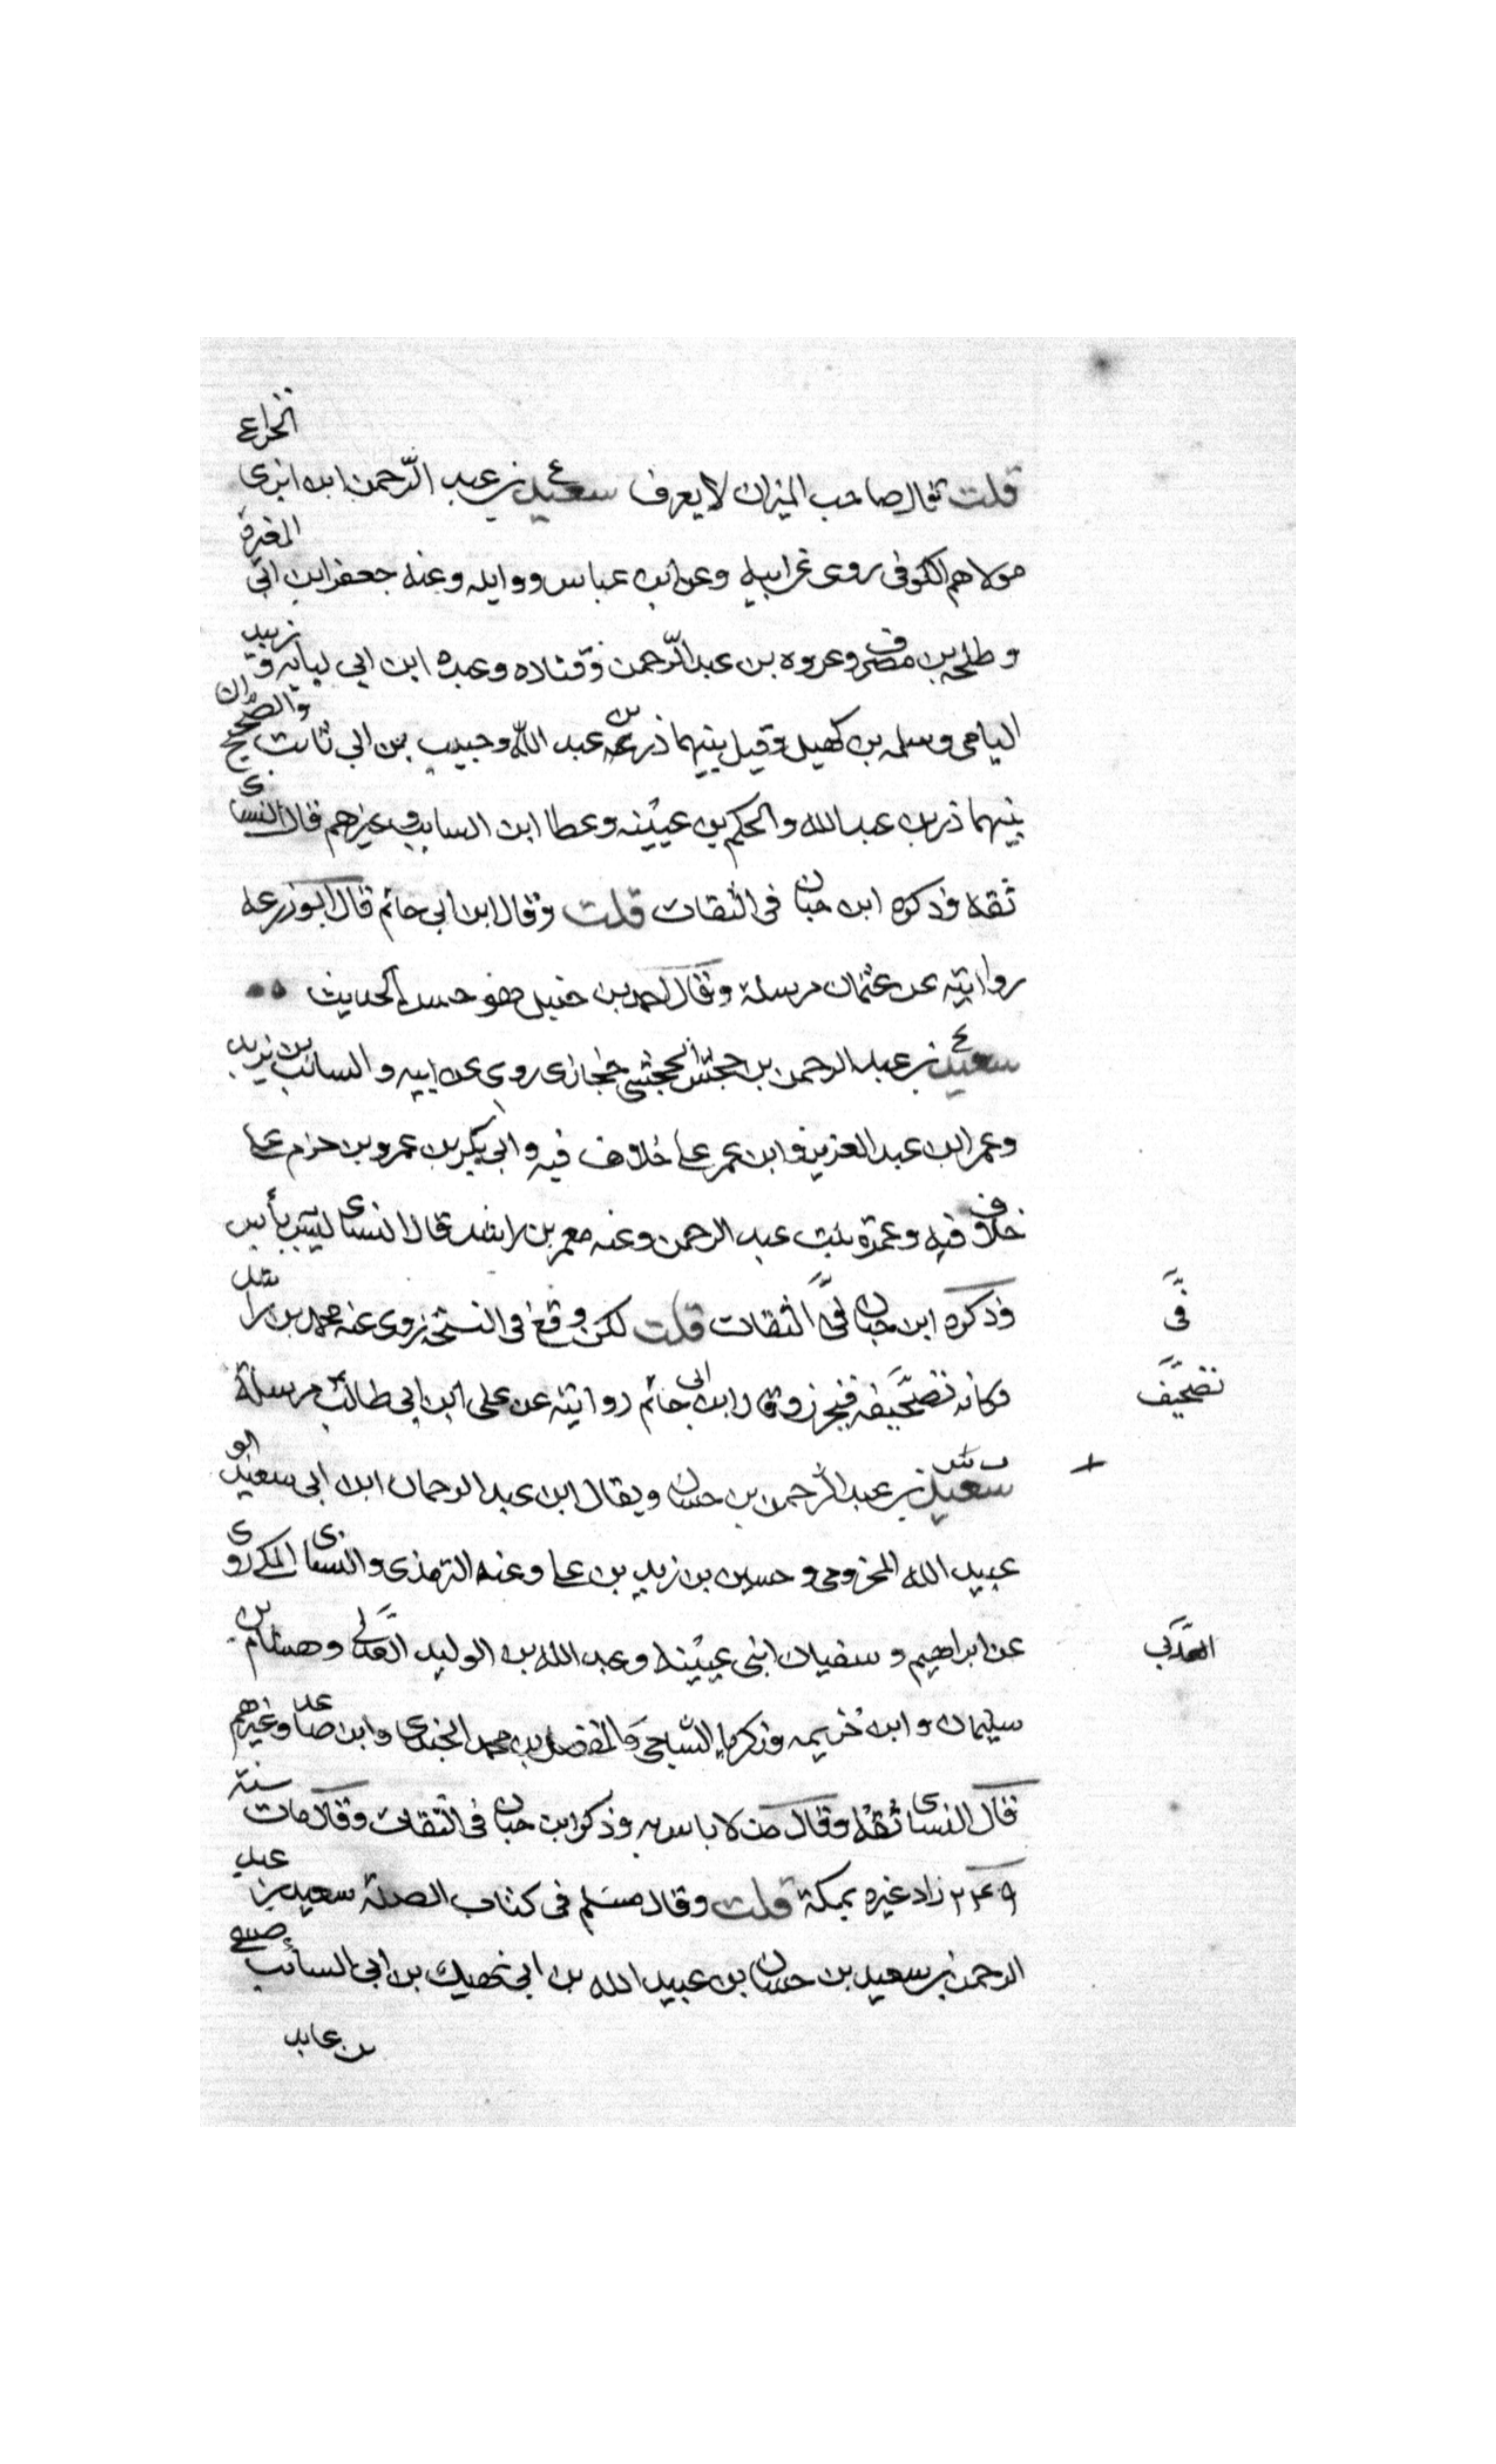 قلت قال صاحب الميزان لا يعرف سعيد بن عبد الرحمن ابن ابزى الخزاعي
مولاهم الكوفى روى عن ابيه وعن ابن عباس ووايله وعنه جعفر ابن ابي المغيرة
وطلحه بن مصرف وعروه بن عبد الرحمن وقتاده وعبده ابن ابي لبابه وزبيد
اليامى وسلمه بن كهيل وقيل بينهما ذر بن عبد الله وحبيب بن ابي ثابت والصحيح ان
بينهما ذر بن عبد الله والحكم بن عيينه وعطا ابن السايب وغيرهم قال النساى
ثقه وذكره ابن حبان فى الثقات قلت وقال ابن ابي حاتم قال ابو زرعه
روايته عن عثمان مرسلة وقال احمد بن حنبل هو حسن الحديث
سعيد بن عبد الرحمن بن جحش الجحشى حجازى روى عن ابيه والسائب بن يزيد
وعمر ابن عبد العزيز وابن عمر على خلاف فيه وابي بكر بن عمرو بن حزم على
خلاف فيه وعمرة بنت عبد الرحمن وعنه معمر بن راشد قال النساى ليس به بأس
وذكره ابن حبان فى الثقات قلت لكن وقع فى النسخه روى عنه محمد بن راشد
فى
وكانه تصحيف وقال ابن ابى حاتم روايته عن على ابن ابي طالب مرسلة
تصحيف
سعيد بن عبد الرحمن بن حسان ويقال ابن عبد الرحمان ابن ابي سعيد ابو
ت س
عبيد الله المخزومى وحسين بن زيد بن على وعنه الترمذى والنساى المكى روى
عن ابراهيم وسفيان ابنى عيينه وعبد الله بن الوليد العدنى وهشام بن
العدنى
سليمان وابن خزيمه وزكريا الساجى والمفضل بن محمد الجندى وابن صاعد وغيرهم
قال النساى ثقه وقال مره لا باس به وذكر ابن حبان فى الثقات وقال مات سنة
٢٤٩ زاد غيره بمكة قلت وقال مسلم فى كتاب الصلة سعيد بن عبد
الرحمن بن سعيد بن حسان بن عبيد الله بن ابى نهيك بن ابى السائب صيفى
بن عابد